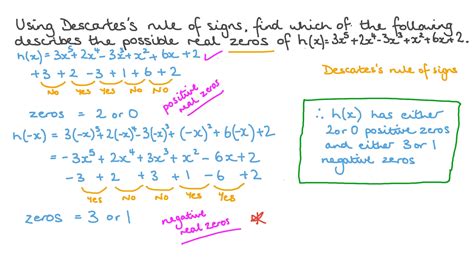 Using Descartes's rule of signs, find which of the following
describes the possible real zeros of h(x)=3x⁵+2x⁴-3x³+x²+6x+2.
h(x)=3x⁵+2x⁴-3x³+x²+6x+2 ✓
Descartes's rule of signs
+3 +2 -3 +1 +6 +2
No Yes Yes No No
positive real zeros
zeros = 2 or 0
h(-x) = 3(-x)⁵+2(-x)⁴-3(-x)³+(-x)²+6(-x)+2
= -3x⁵+2x⁴+3x³+x²-6x+2
-3 +2 +3 +1 -6 +2
Yes No No Yes Yes
zeros = 3 or 1
negative real zeros
∴ h(x) has either
2 or 0 positive zeros
and either 3 or 1
negative zeros